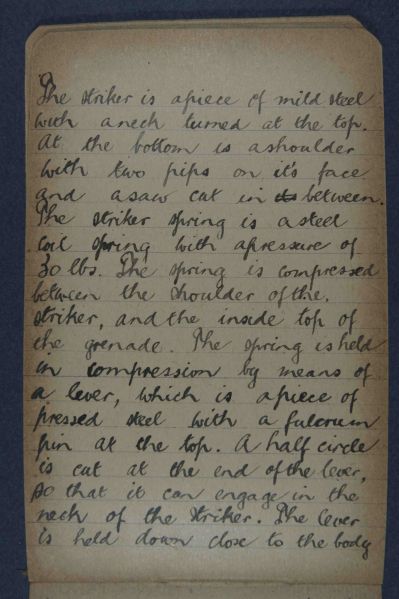 The striker is a piece of mild steel
with a neck turned at the top.
At the bottom is a shoulder
with two pips on it's face
and a saw cut in between.
The striker spring is a steel
coil spring with a pressure of
30 lbs. The spring is compressed
between the shoulder of the,
striker, and the inside top of
the grenade. The spring is held
in compression by means of
a lever, which is a piece of
pressed steel with a fulcrum
pin at the top. A half circle
is cut at the end of the lever,
so that it can engage in the
neck of the striker. The lever
is held down close to the body